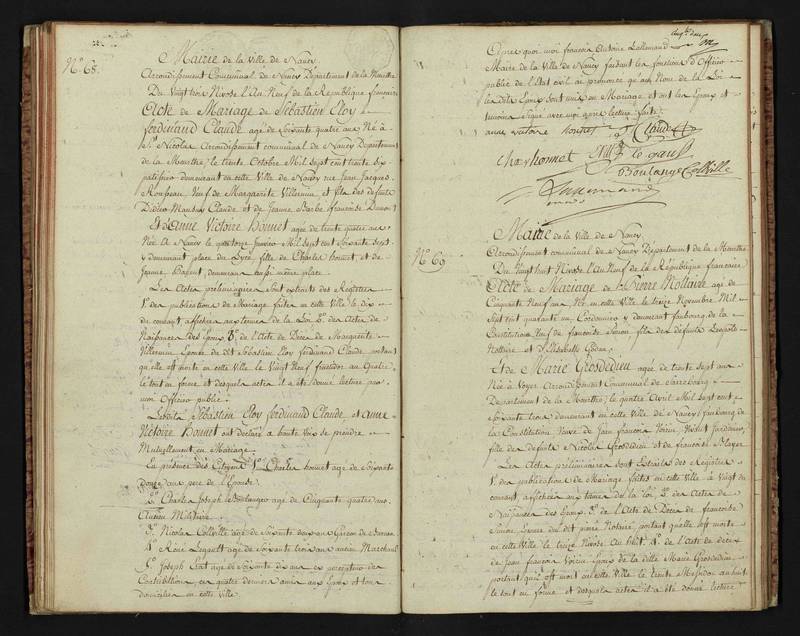 N° 68.
Mairie de la Ville de Nancy
Arrondissement Communal de Nancy Département de la Meurthe
Du Vingt trois Nivose l'An Neuf de la République française
Acte de Mariage de Sébastien Eloy
ferdinand Claude agé de Soixante quatre ans Né à
St. Nicolas Arrondissement communal de Nancy Département
de la Meurthe, le trente Octobre Mil sept cent trente six
patissier demeurant en cette Ville de Nancy rue Jean Jacques
Rousseau Veuf de Marguerite Villemin et fils des defunts
Didier Mansuy Claude et de Jeanne Barbe françoise Dumont
Et d'Anne Victoire Honnet agée de trente quatre ans
Née à Nancy le quatorze Janvier Mil sept cent Soixante sept
y demeurant place du Lycé, fille de Charles honnet, et de
Jeanne demeurant aussi même place
Les Actes préliminaires sont extraits des Registres
1° des publications de Mariage faites en cette Ville le dix
du courant affichées aux termes de la Loi 2° des Actes de
Naissances des Epoux 3° de l'Acte de Décès de Marguerite
Villemin Epouse du dit Sébastien Eloy ferdinand Claude portant
qu'elle est morte en cette Ville le Vingt Neuf fructidor an Quatre
le tout en forme et desquels actes il a été donné lecture par
moi Officier public.
Lesdits Sébastien Eloy ferdinand Claude, et Anne
Victoire Honnet ont déclaré à haute voix se prendre
Mutuellement en Mariage.
En présence des Citoyens 1° Charles honnet agé de Soixante
douze ans pere de l'Epouse.
2° Charles Joseph Boulanger agé de Cinquante quatre ans
Ancien Militaire
3° Nicolas Collville agé de Soixante deux ans Garçon de Bureau
4° René Legault agé de Soixante trois ans ancien Marchand
5° Joseph agé de Soixante dix ans ex percepteur des
Contributions, ces quatre derniers amis aux Epoux et tous
domiciliés en cette ville
Après quoi moi françois Antoine Lallemand
Maire de la Ville de Nancy faisant les fonctions d'Officier
public de l'Etat civil ai prononcé qu'au Nom de la Loi
les dits Epoux sont unis en Mariage et ont les Epoux et
temoins Signé avec moi après lecture faite
anne victoire honnet Claude
Charles honnet le gault
Boulanger Collville
Lallemand
N° 69
Mairie de la Ville de Nancy
Arrondissement communal de Nancy Département de la Meurthe
Du Vingt huit Nivose l'An Neuf de la République française
Acte de Mariage de Pierre Nottaire agé de
Cinquante Neuf ans Né en cette Ville le treize Novembre Mil
Sept cent quarante un Cordonnier y demeurant faubourg de la
Constitution Veuf de françoise Simon fils des defunts Léopold
Nottaire et d'Elisabeth
Et de Marie Grosdedieu agée de trente Sept ans
Née à Voyer Arrondissement Communal de Sarrebourg
Département de la Meurthe, le quatre Avril Mil sept cent
soixante trois demeurant en cette Ville de Nancy, faubourg de
la Constitution Veuve de Jean françois Voirin Vivant Jardinier
fille des defunts Nicolas Grosdedieu et de françoise
Les Actes préliminaires sont Extraits des Registres
1° des publications de Mariage faites en cette Ville le Vingt du
courant, affichées aux termes de la loi, 2° des Actes de
Naissances des Epoux, 3° de l'Acte de Décès de françoise
Simon Epouse du dit pierre Nottaire, portant qu'elle est morte
en cette Ville le treize Nivose An huit, 4° de l'acte de décès
de Jean françois Voirin Epoux de la dite Marie Grosdedieu
portant qu'il est mort en cette Ville le trente Messidor an huit
le tout en forme et desquels actes il a été donné lecture